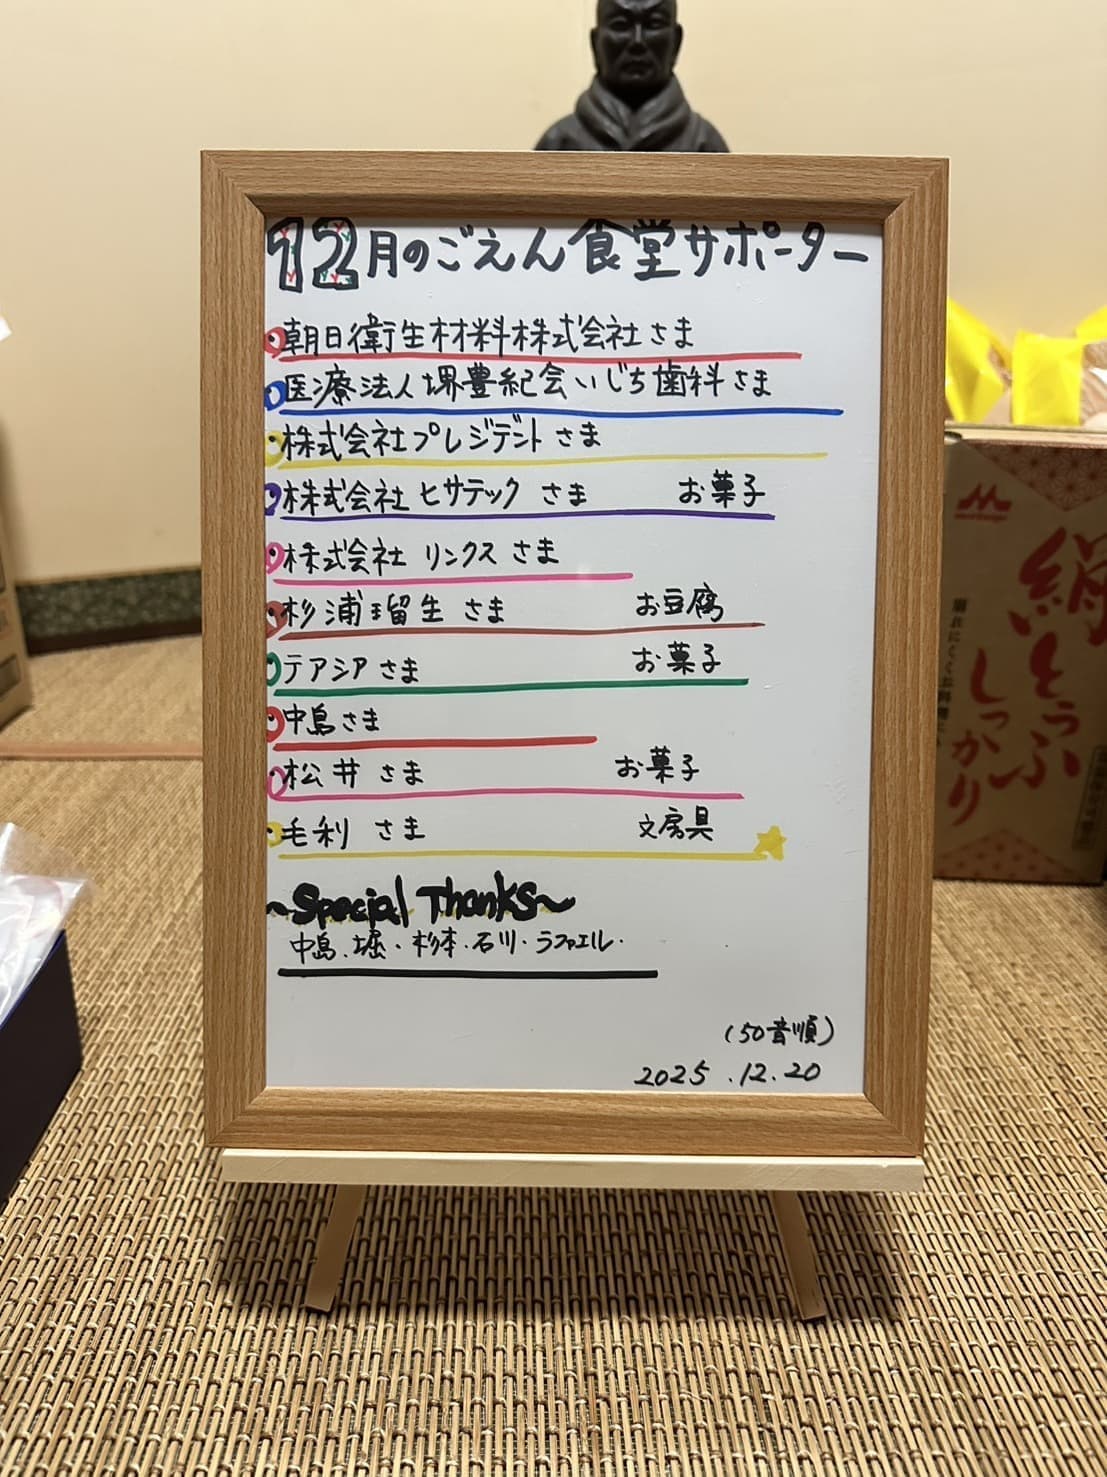 12月のごえん食堂サポーター
朝日衛生材料株式会社さま
医療法人堺豊紀会いじち歯科さま
株式会社プレジデントさま
株式会社ヒサテックさま お菓子
株式会社リンクスさま
杉浦瑠生さま お豆腐
テアシアさま お菓子
中島さま
松井さま お菓子
毛利さま 文房具
~Special Thanks~
中島.堀.杉本.石川.ラファエル.
(50音順)
2025.12.20
絹とうふ
しっかり